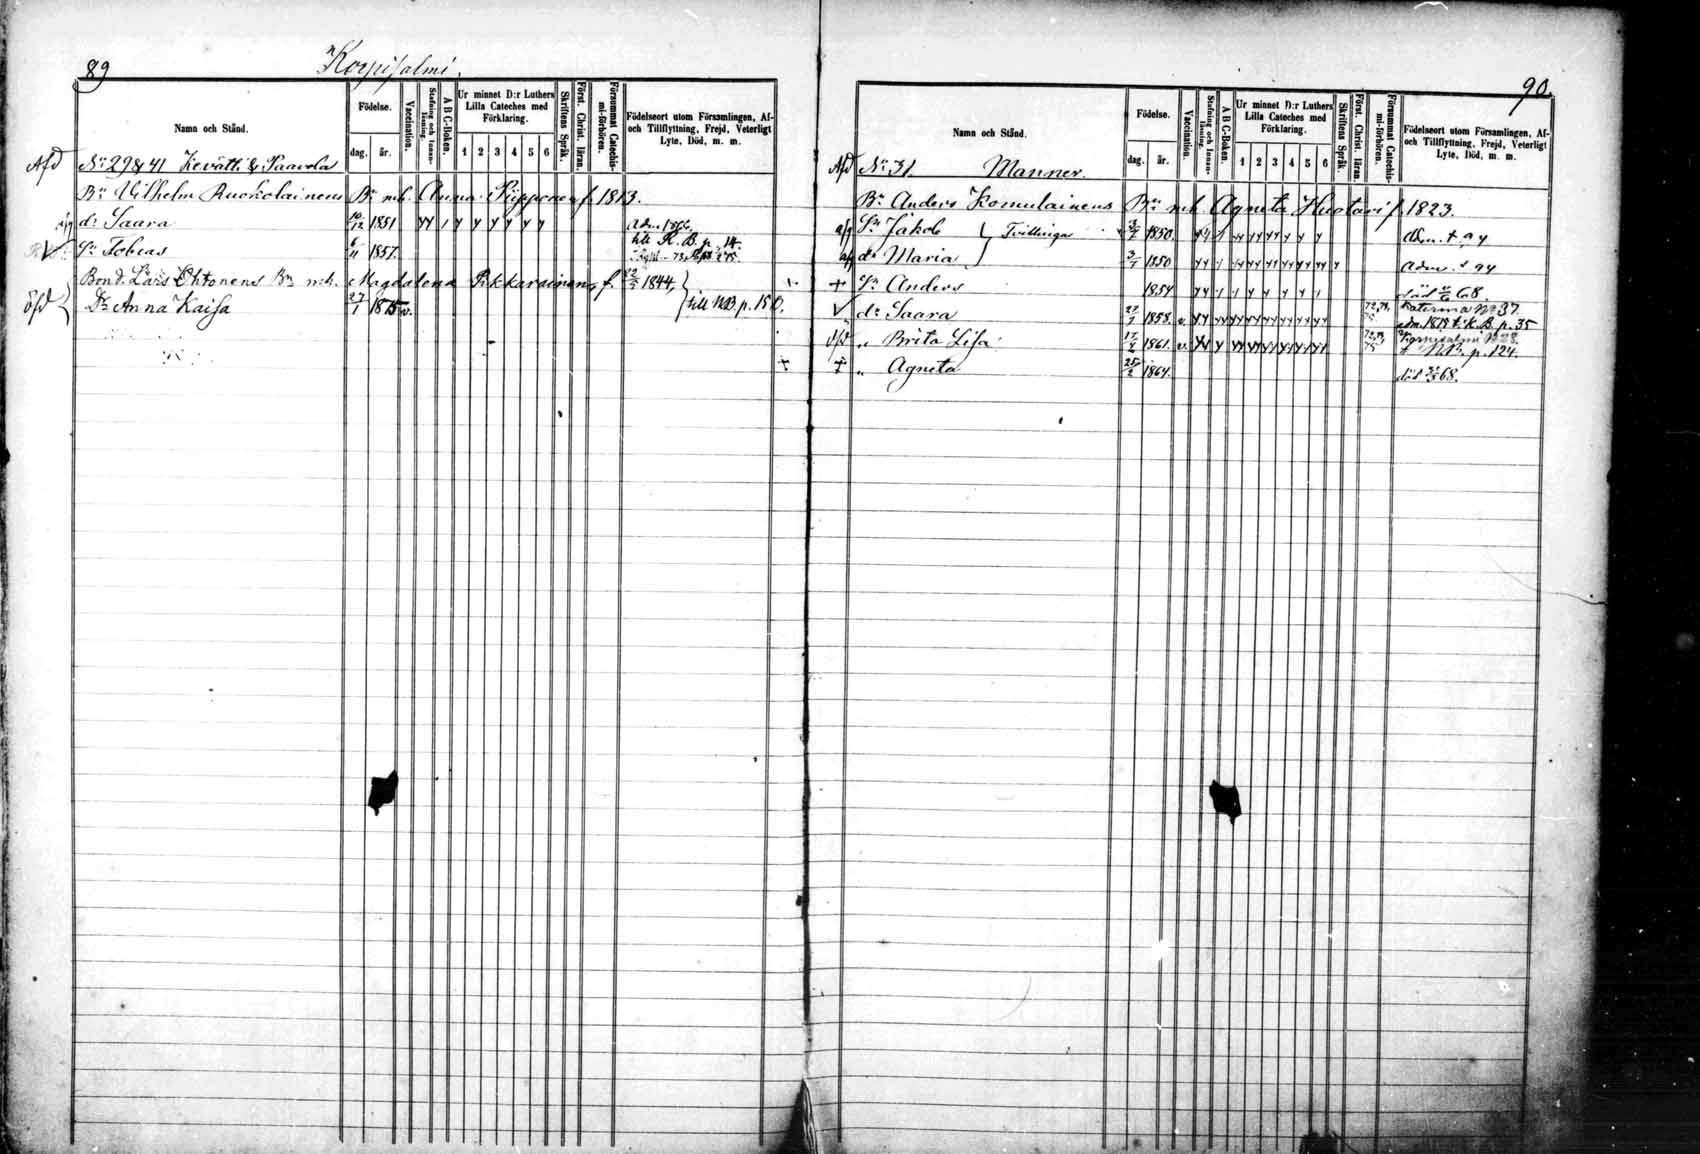 89
Korpisalmi.
Namn och Stånd.
Födelse.
dag. år.
Vaccination.
Stafning och Innan-läsning.
A B C-Boken.
Ur minnet D:r Luthers Lilla Cateches med Förklaring.
1 2 3 4 5 6
Skriftens Språk.
Först. Christ. läran.
Försummat Catechis-mi-förhören.
Födelseort utom Församlingen, Af- och Tillflyttning, Frejd, Veterligt Lyte, Död, m. m.
Afd No 29 & 41 Kevätti & Saavola
Bn Vilhelm Ruokolainens Bn m.h. Anna Piipponen f. 1813.
dr Saara 10/12 1851 adm. 1866,
Sn Tobias 6/11 1857. till K. B. p. 14.
Bond. Lars Ohtonens Bn m.h. Magdalena Pikkarainen, f. 22/2 1844,
Dr Anna Kaisa 27/1 1875 v. till NB p. 150.
90.
Namn och Stånd.
Födelse.
dag. år.
Vaccination.
Stafning och Innan-läsning.
A B C-Boken.
Ur minnet D:r Luthers Lilla Cateches med Förklaring.
1 2 3 4 5 6
Skriftens Språk.
Först. Christ. läran.
Försummat Catechis-mi-förhören.
Födelseort utom Församlingen, Af- och Tillflyttning, Frejd, Veterligt Lyte, Död, m. m.
Afd No 31. Manner.
Bn Anders Komulainens Bn m.h. Agneta Huotari f. 1823.
Sn Jakob } Tvillingar 3/7 1850.
dr Maria 3/7 1850
+ Sn Anders 1854 död 68.
dr Saara 27/7 1858. v. No 37. K. B. p. 35
„ Brita Lisa 17/2 1861. v. N.B. p. 124.
+ „ Agneta 25/2 1864. död 68.